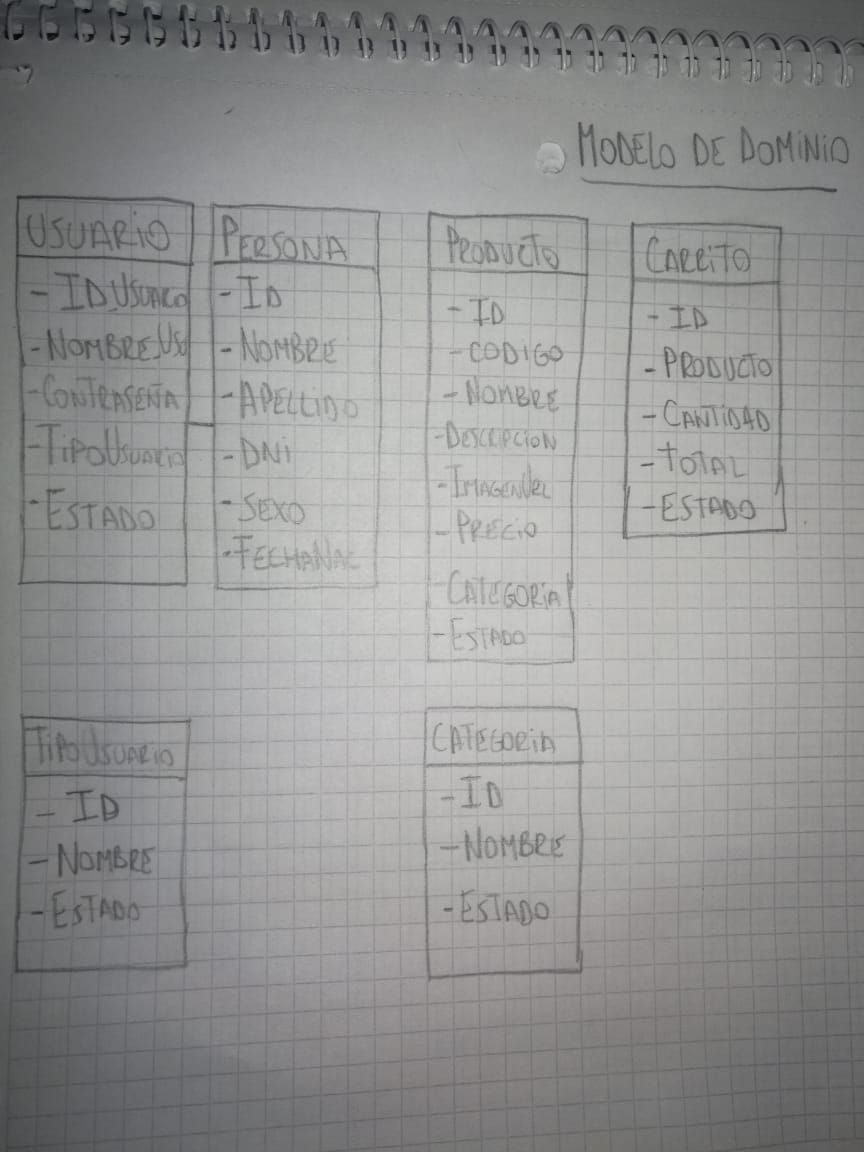 MODELO DE DOMINIO
USUARIO
- ID_USUARIO
- NOMBRE_USO
- CONTRASEÑA
- TIPOUSUARIO
- ESTADO
PERSONA
- ID
- NOMBRE
- APELLIDO
- DNI
- SEXO
- FECHANAC
PRODUCTO
- ID
- CODIGO
- NOMBRE
- DESCRIPCION
- IMAGENURL
- PRECIO
- CATEGORIA
- ESTADO
CARRITO
- ID
- PRODUCTO
- CANTIDAD
- TOTAL
- ESTADO
TIPOUSUARIO
- ID
- NOMBRE
- ESTADO
CATEGORIA
- ID
- NOMBRE
- ESTADO